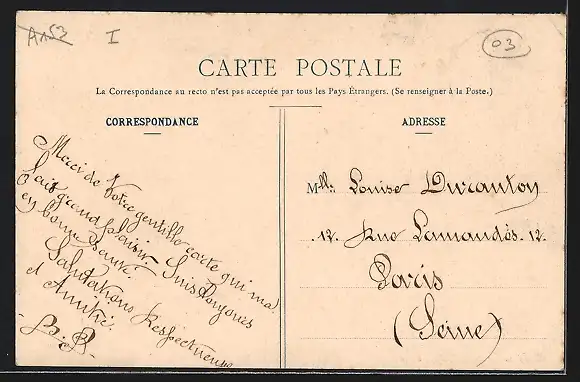 A1152 I 03
CARTE POSTALE
La Correspondance au recto n'est pas acceptée par tous les Pays Étrangers. (Se renseigner à la Poste.)
CORRESPONDANCE
Merci de Votre gentille carte qui ma
Fait grand plaisir. Suis toujours
en bonne santé.
Salutations Respectueuses
et Amitié.
ADRESSE
Mlle: Louise Duranton
12. Rue Lamandés. 12
Paris
(Seine)